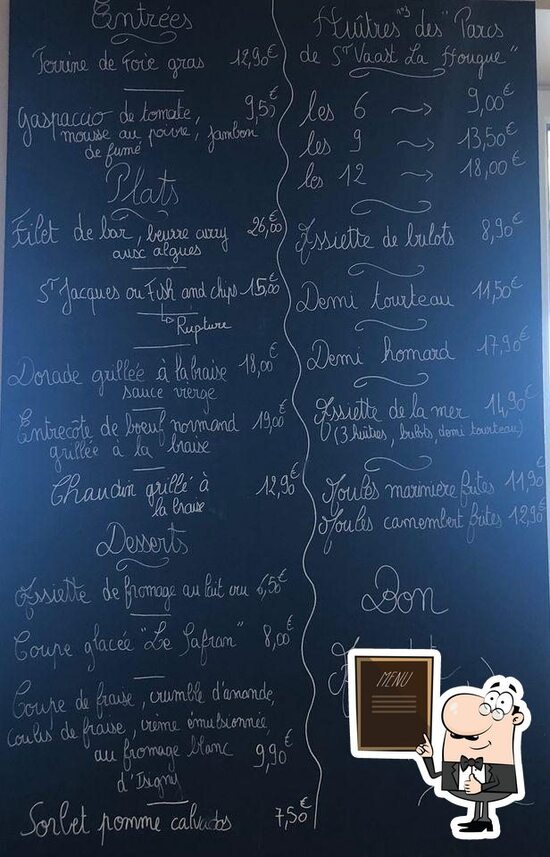 Entrées
Terrine de Foie gras 12,90€
gaspaccio de tomate, 9,50€
mousse au poivre, jambon
de fumé
Plats
Filet de bar, beurre curry 26,00€
aux algues
St Jacques ou Fish and chips 15,00€
Rupture
Dorade grillée à la braise 18,00€
sauce vierge
Entrecôte de boeuf normand 19,00€
grillée à la braise
Chaudin grillé à 12,90€
la braise
Desserts
Assiette de fromage au lait cru 6,50€
Coupe glacée "Le Safran" 8,00€
Coupe de fraise, crumble d'amande,
coulis de fraise, crème émulsionnée
au fromage blanc 9,90€
d'Isigny
Sorbet pomme calvados 7,50€
Huîtres n°3 des "Parcs
de St Vaast La Hougue"
les 6 → 9,00€
les 9 → 13,50€
les 12 → 18,00€
Assiette de bulots 8,90€
Demi tourteau 11,50€
Demi homard 17,90€
Assiette de la mer 14,90€
(3 huîtres, bulots, demi tourteau)
Moules marinière frites 11,90€
Moules camembert frites 12,90€
Bon
MENU